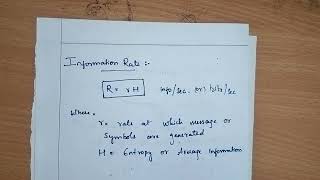 Information Rate :-
R = rH info/sec. or bits/sec
Where,
r = rate at which message or
symbols are generated
H = Entropy or Average Information